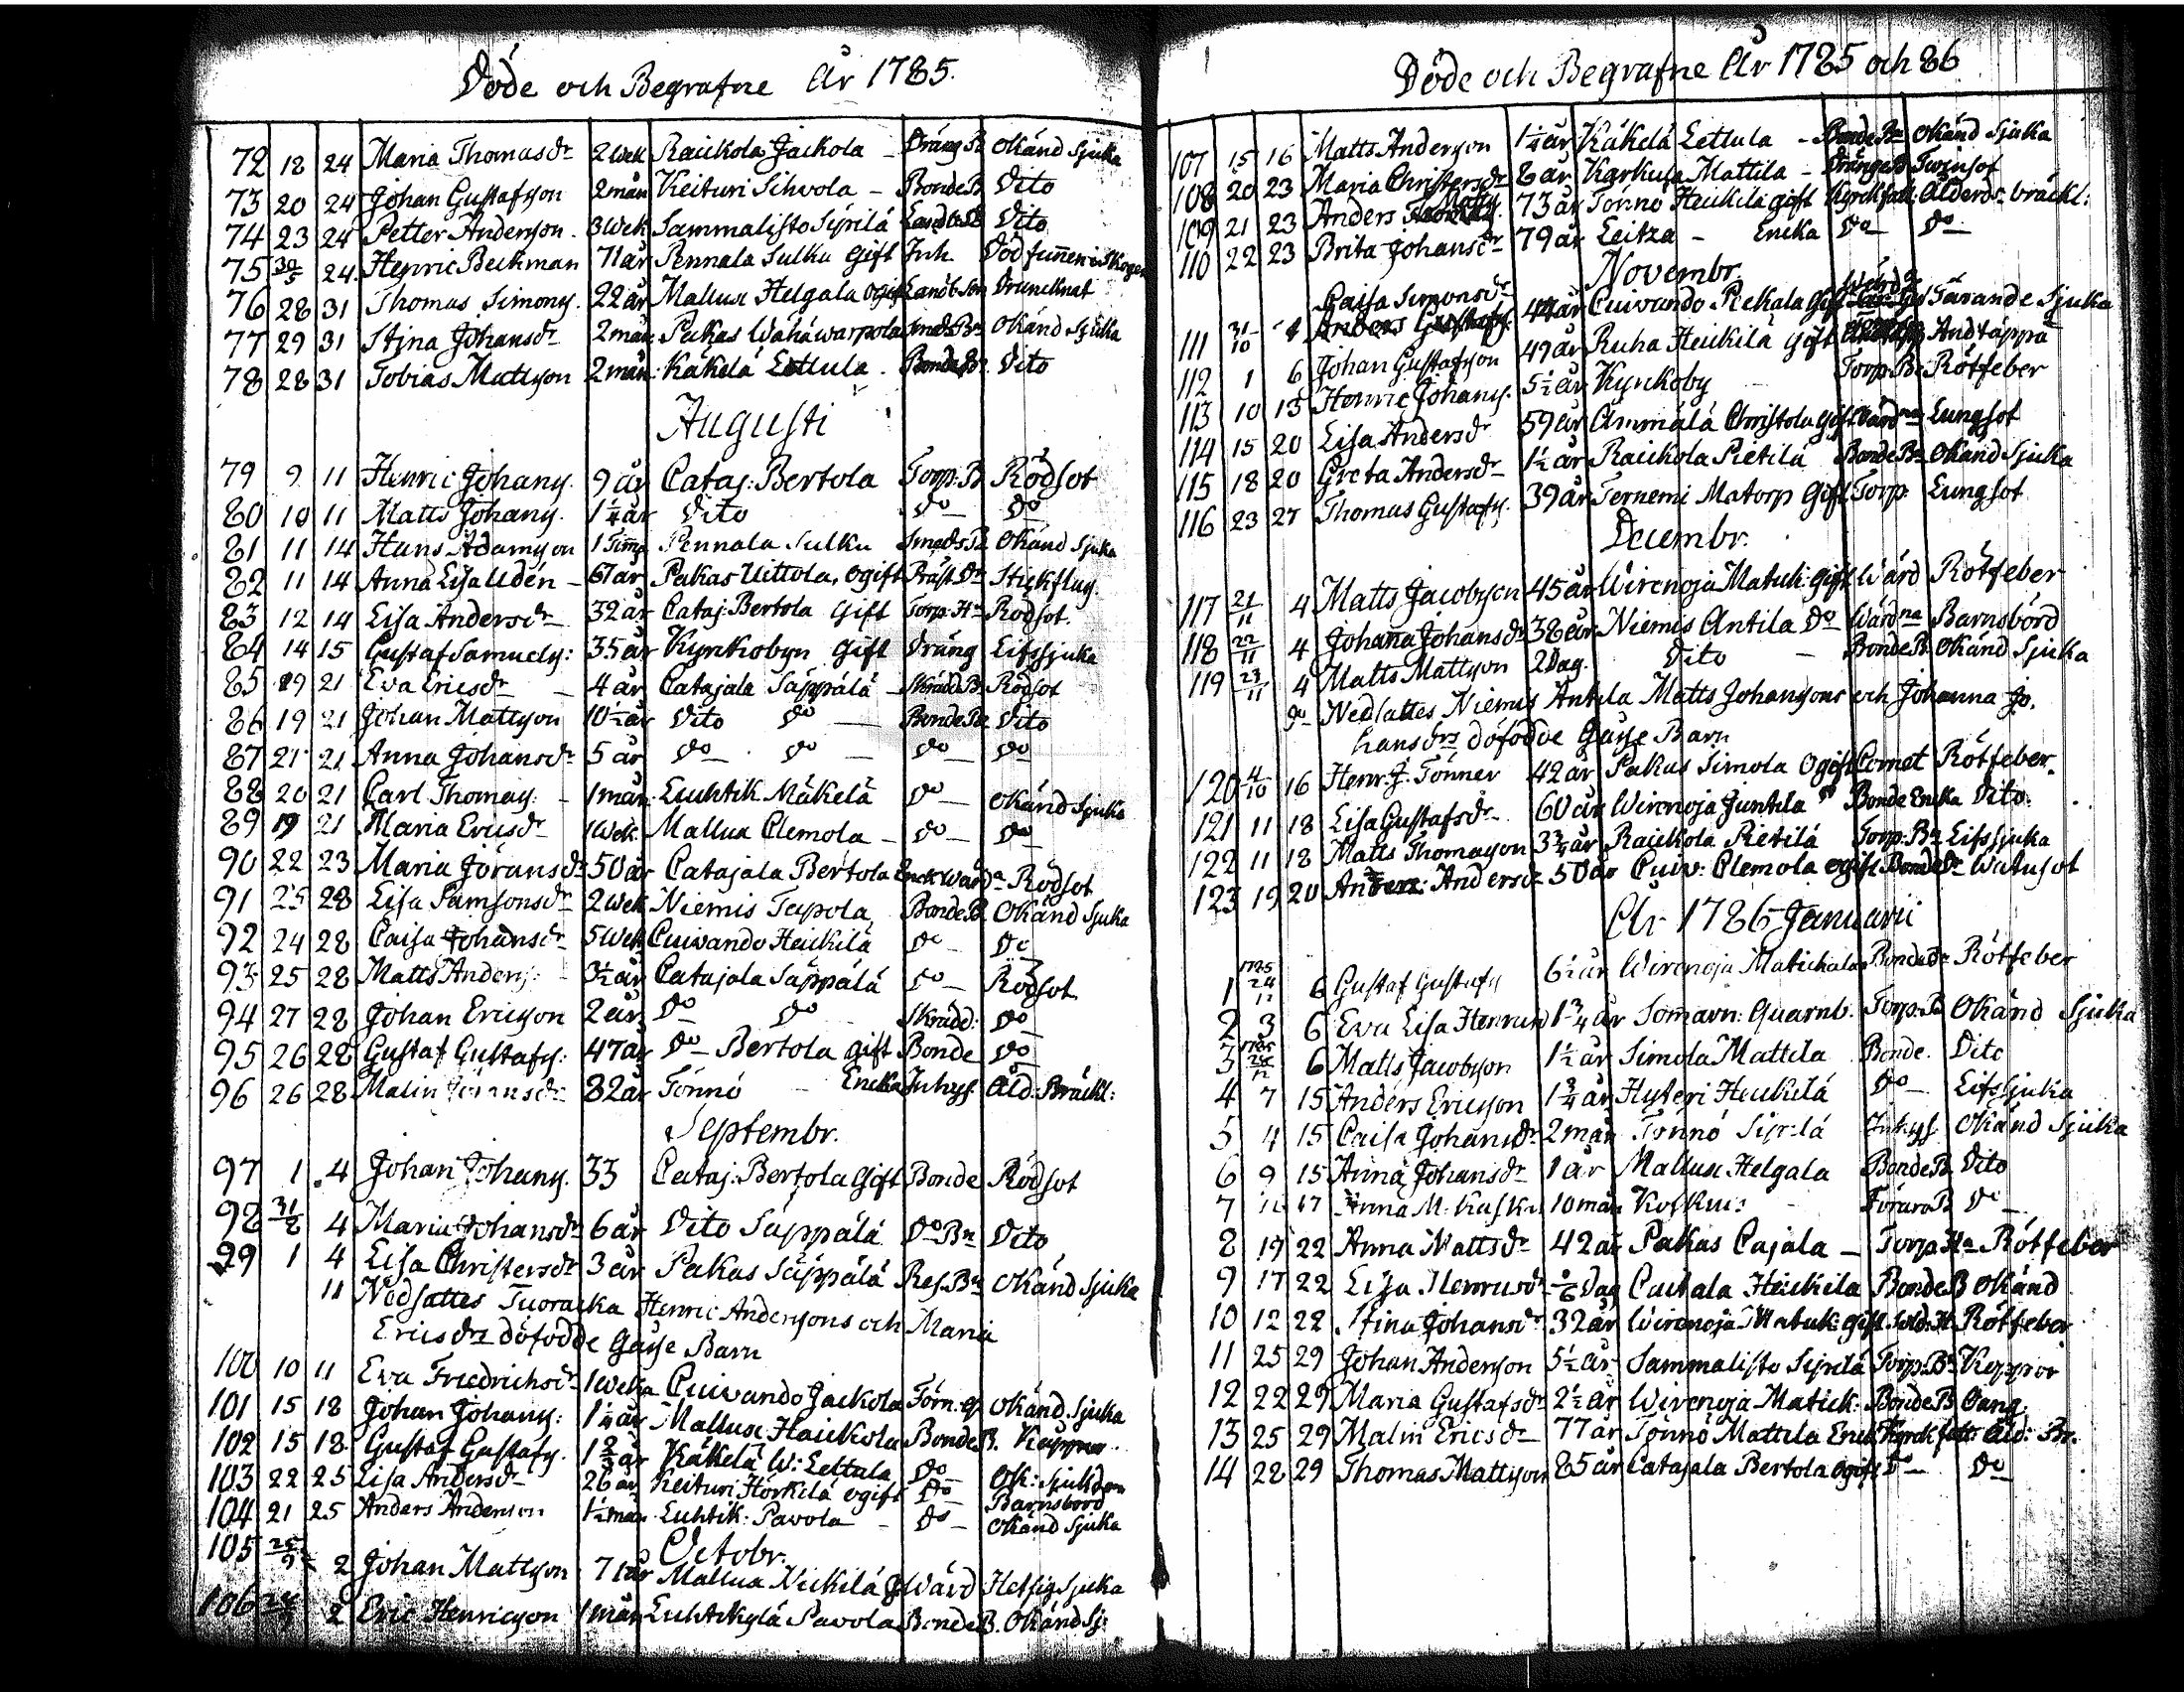 Döde och Begrafne År 1785.
72 18 24 Maria Thomasdr 2 Wek Raickola Jackola - Dräng B Okänd Sjuka
73 20 24 Johan Gustafson 2 mån Keituri Sihvola - Bonde B Dito
74 23 24 Petter Anderson. 3 Wek Sammalisto Syrilä Dito
75 30/5 24. Henric Beckman 71 år Pennala Sulku Gift Inh. Död funnen i Skogen
76 28 31 Thomas Simons. 22 år Mallusi Helgala ogift Landb. Son Druncknat
77 29 31 Stina Johansdr 2 mån Pakas Wähäwarpola Okänd Sjuka
78 28 31 Tobias Mattson 2 mån: Käkelä Lettula. Bonde Bn. Dito
Augusti
79 9 11 Henric Johans. 9 år Cataj: Bertola Torp: B Rödsot
80 10 11 Matts Johans. 1 1/4 år Dito Do Do
81 11 14 Hans Adamson 1 Tima Pennala Sulku Smeds B. Okänd Sjuka
82 11 14 Anna Lisa Udén - 67 år Pakas Uittola, ogift Präst. Dr Stickflug.
83 12 14 Lisa Andersdr 32 år Cataj: Bertola Gift Torp: Ha Rödsot.
84 14 15 Gustaf Samuels: 35 år Kyrkobyn Gift Dräng Lifssjuka
85 19 21 Eva Ericsdr - 4 år Catajala Säppälä - Skrädd B. Rödsot
86 19 21 Johan Mattson 10 1/2 år Dito Do Bonde Bn Dito
87 21 21 Anna Johansdr 5 år Do Do Do Do
88 20 21 Carl Thomas: - 1 mån: Luhtik. Mäkelä Do Okänd Sjuka
89 19 21 Maria Ericsdr 1 Wek. Mallusi Clemola - Do Do
90 22 23 Maria Göransdr 50 år Catajala Bertola Enck Wärda Rödsot
91 25 28 Lisa Samsonsdr 2 Wek Niemis Tapola Bonde B. Okänd Sjuka
92 24 28 Caisa Johansdr 5 Wek Cuivando Heickilä Do Do
93 25 28 Matts Anders: 3 1/2 år Catajala Säppälä Do Rödsot
94 27 28 Johan Ericson 2 år Do Do Skrädd: Do
95 26 28 Gustaf Gustafs: 47 år Do Bertola gift Bonde Do
96 26 28 Malin Göransdr 82 år Tönnö - Encka Inhys. Åld: Bräckl:
Septembr.
97 1 4 Johan Johans. 33 Cataj: Bertola Gift Bonde Rödsot
98 31/8 4 Maria Johansdr 6 år Dito Säppälä Do Bn Dito
99 1 4 Lisa Christersdr 3 år Pakas Säppälä Res. Bn Okänd Sjuka
11 Nedsattes Tuoracka Henric Andersons och Maria
Ericsdrs döfödde Gåsse Barn
100 10 11 Eva Friedrichsdr 1 Weka Cuivando Jackola Okänd Sjuka
101 15 18 Johan Johans: 1 1/4 år Mallusi Haickola Bonde B. Koppor
102 15 18 Gustaf Gustafs. 1 2/3 år Käkelä W: Lettula Do Ok: Sjukdom
103 22 25 Lisa Andersdr 26 år Keituri Hörkilä ogift Do Barnsbörd
104 21 25 Anders Anderson 1 1/2 mån Luhtik: Pavola - Do - Okänd Sjuka
Octobr.
105 25/9 2 Johan Mattson 71 år Mallusi Nickilä G Wärd Hetsig Sjuka
106 24/9 2 Eric Henricson 1 mån Luhtikylä Pavola Bonde B. Okänd Sj:
Döde och Begrafne År 1785 och 86
107 15 16 Matts Anderson 1 1/4 år Käkelä Lettula - Bonde Bn Okänd Sjuka
108 20 23 Maria Christersdr 8 år Karkula Mattila - Dränge B Twinsot
109 21 23 Anders Matts. 73 år Tönnö Heickilä gift Kyrck fatt: Ålderds. bräckl:
110 22 23 Brita Johansdr 79 år Leitza - Encka Do Do
Novembr.
111 31/10 4 Caisa Simonsdr 44 år Cuivando Pickala Gift Tärande Sjuka
112 1 6 Johan Gustafson 49 år Ruha Heickilä gift Andtäppa
113 10 13 Henric Johans. 5 1/2 år Kyrckoby Torp: Bn Rötfeber
114 15 20 Lisa Andersdr 59 år Ammälä Christola gift Wärdna Lungsot
115 18 20 Greta Andersdr 1 1/2 år Raickola Pietilä Bonde Bn Okänd Sjuka
116 23 27 Thomas Gustafs. 39 år Ternemi Matorp Gift Torp. Lungsot
Decembr.
117 21/11 4 Matts Jacobson 45 år Wirenoja Matick: gift Wärd Rötfeber
118 22/11 4 Johana Johansdr 38 år Niemis Antila Do Wärdna Barnsbörd
119 23/11 4 Matts Mattson 2 Dag. Dito - Bonde B. Okänd Sjuka
Do Nedsattes Niemis Antila Matts Johansons och Johanna Jo.
hansdrs döfödde Gåsse Barn
120 4/10 16 Henr. J. Tönner 42 år Pakas Simola Ogift Cornet Rötfeber.
121 11 18 Lisa Gustafsdr 60 år Wirenoja Juntila Bonde Encka Dito.
122 11 18 Matts Thomason 3 3/4 år Raickola Pietilä Torp: Bn Lifssjuka
123 19 20 Andersdr 50 år Cuiv: Clemola ogift Bonde Dr Watusot
År 1786 Januarii
1 1785 24/12 6 Gustaf Gustafs 6 1/2 år Wirenoja Matickala Rötfeber
2 3 6 Eva Lisa Henricsd 1 3/4 år Somarn: Quarnb. Torp: B Okänd Sjuka
3 1785 6 Matts Jacobson 1 1/2 år Simola Mattila Bonde. Dito
4 7 15 Anders Ericson 1 3/4 år Hyteri Heickilä Do Lifssjuka
5 4 15 Caisa Johansdr 2 mån Tönnö Siprilä Inhys. Okänd Sjuka
6 9 15 Anna Johansdr 1 år Mallusi Helgala Bonde B. Dito
7 17 Anna M. 10 mån Förare B Do
8 19 22 Anna Mattsdr 42 år Pakas Cajala - Torp: Ha Rötfeber
9 17 22 Lisa Henricsdr Dag Heickilä Bonde B Okänd
10 12 22 Stina Johansdr 32 år Wirenoja Matick: gift Sold. H. Rötfeber
11 25 29 Johan Anderson 5 1/2 år Sammalisto Siprilä Torp: Bn Koppor
12 22 29 Maria Gustafsdr 2 1/2 år Wirenoja Matick: Bonde B Gang.
13 25 29 Malin Ericsdr 77 år Tönnö Mattila Enck Kyrck fatt: Åld: Br.
14 28 29 Thomas Mattson 85 år Catajala Bertola ogift Do Do